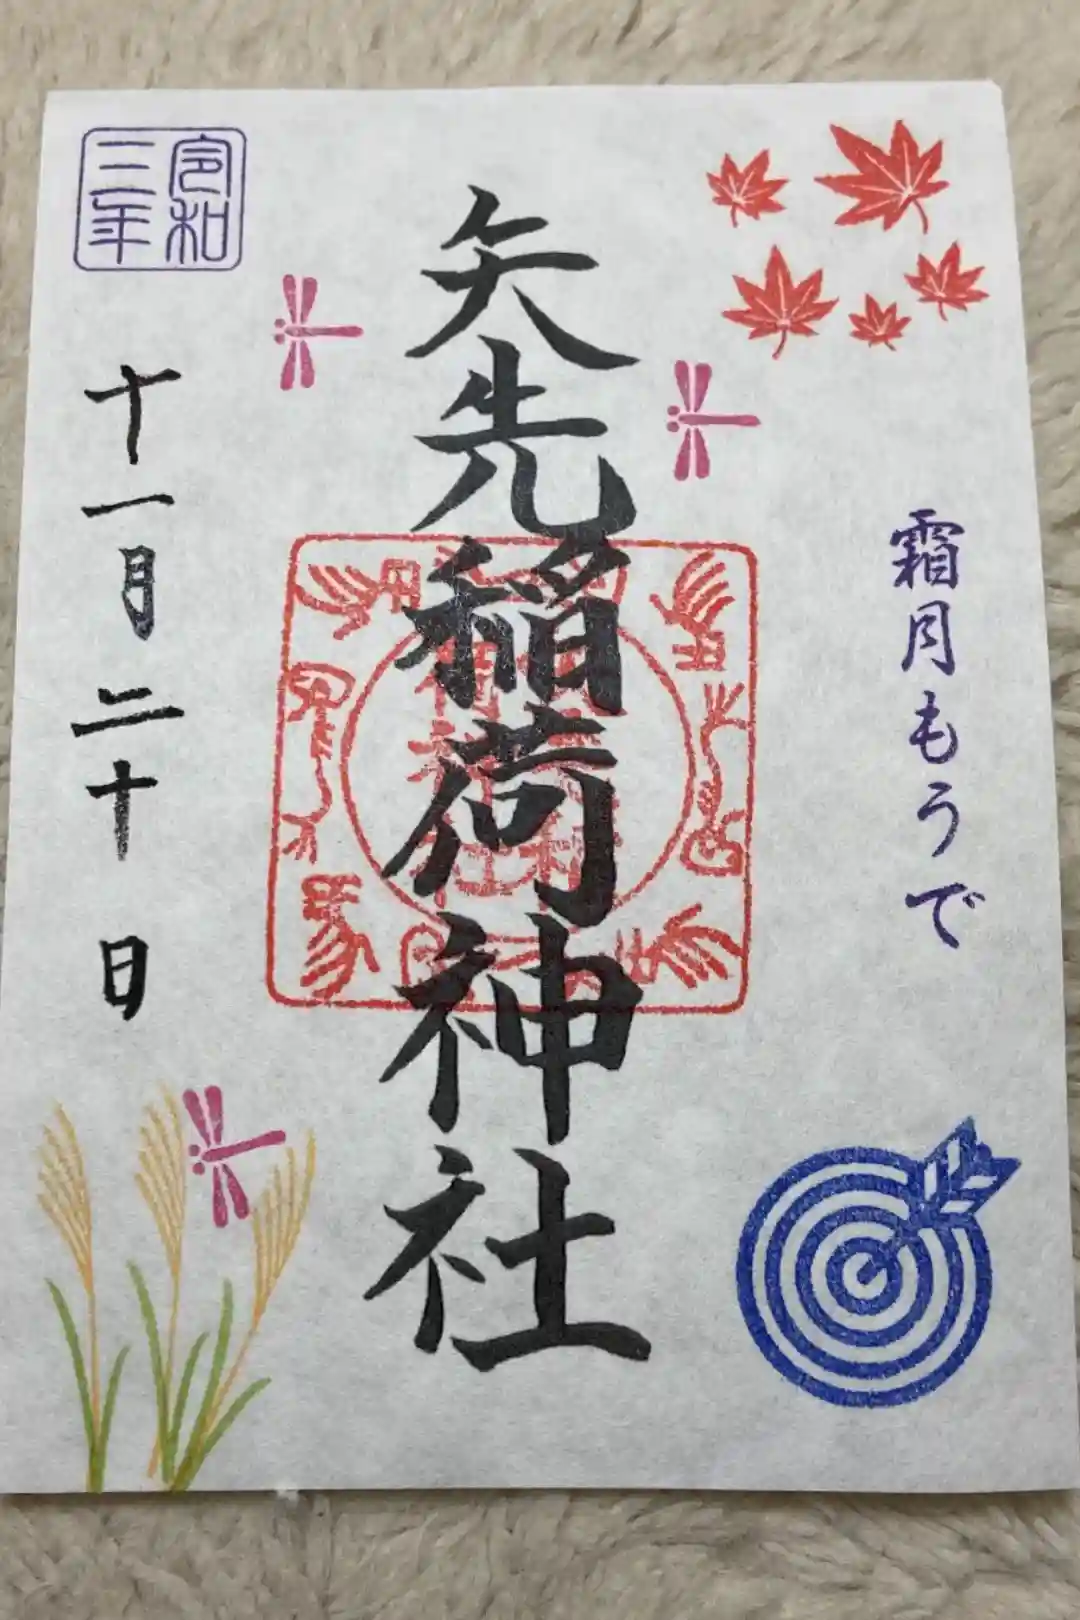 霜月もうで
矢先稲荷神社
令和
三年
十一月二十日